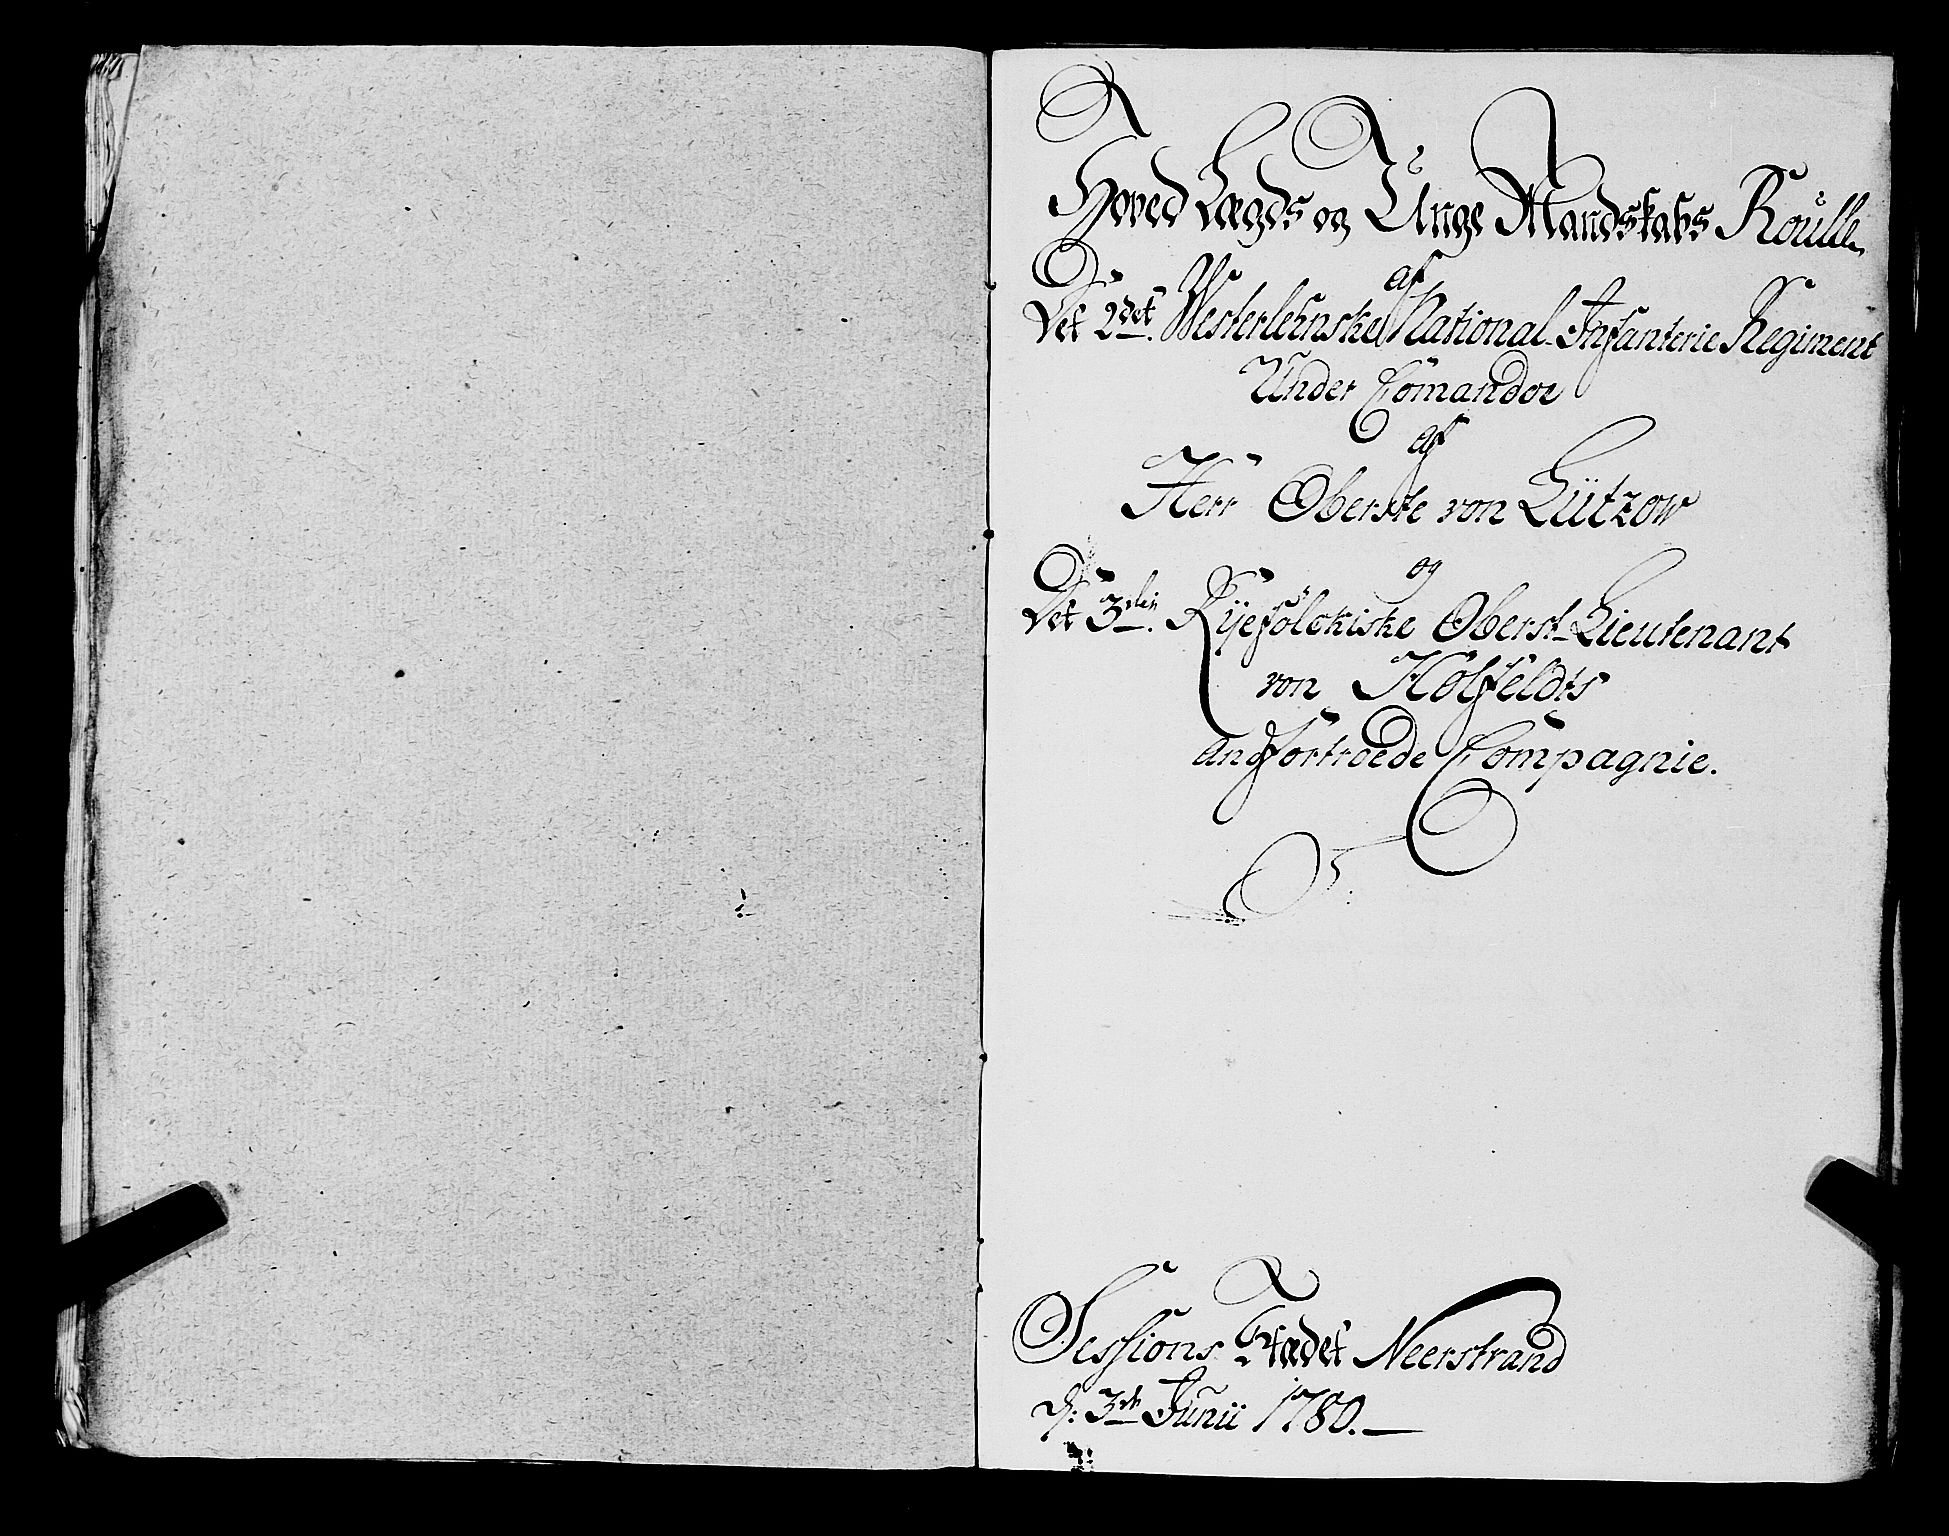 Hoved Lægds og Unge Mandskabs Roulle
af
Det 2det. Westerlehnske National-Infanterie Regiment
Under Comandoe
af
Herr Oberste von Lützow
og
Det 3die. Ryefölckiske Oberst-Lieutenant
von Holfeldts
Anfortroede Compagnie.
Sessions Stædet Neerstrand
d: 3de Junii 1780.